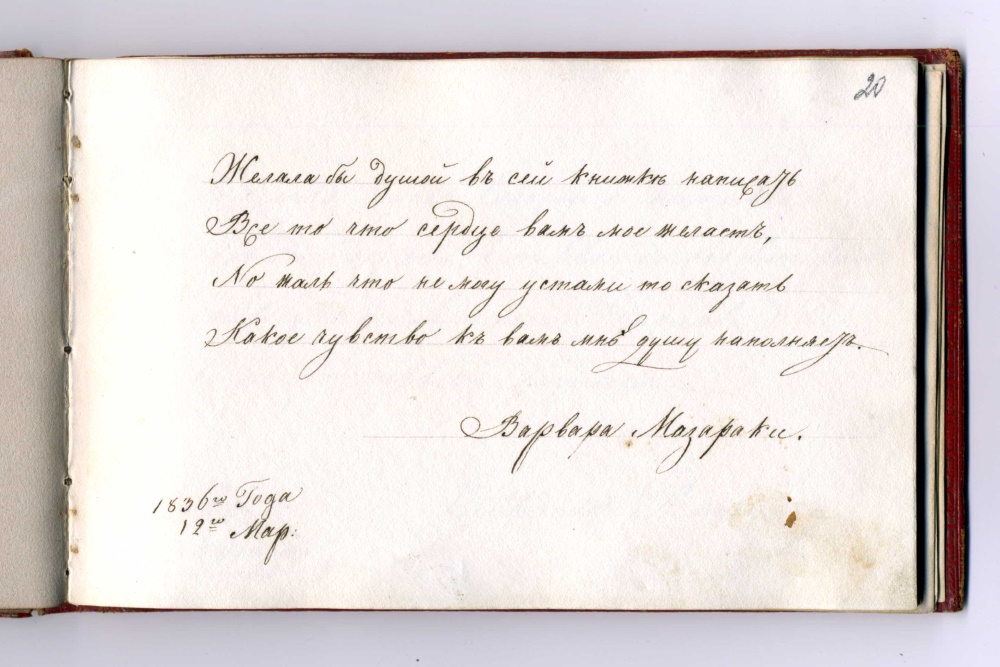 20
Желала бы душой въ сей книжкѣ написать
Все то что сердце вамъ мое желаетъ,
Но жаль что не могу устами то сказать
Какое чувство къ вамъ мнѣ душу наполняетъ.
Варвара Мазараки.
1836го Года
12го Мар: